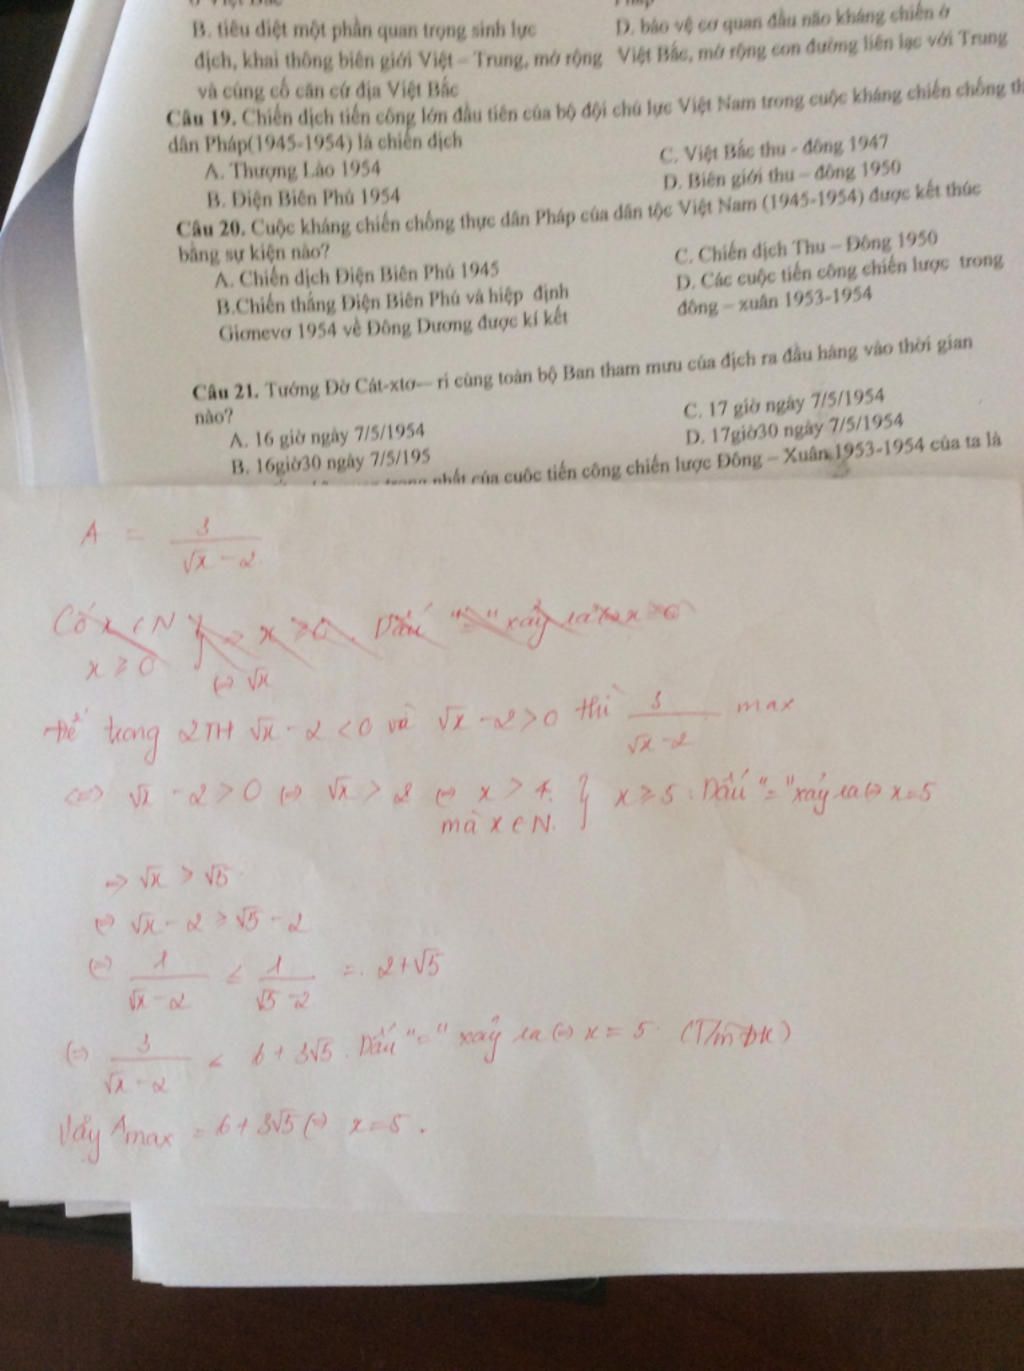 B. tiêu diệt một phần quan trọng sinh lực
địch, khai thông biên giới Việt – Trung, mở rộng
và củng cố căn cứ địa Việt Bắc
D. bảo vệ cơ quan đầu não kháng chiến ở
Việt Bắc, mở rộng con đường liên lạc với Trung
Câu 19. Chiến dịch tiến công lớn đầu tiên của bộ đội chủ lực Việt Nam trong cuộc kháng chiến chống
dân Pháp(1945-1954) là chiến dịch
A. Thượng Lào 1954
B. Điện Biên Phủ 1954
C. Việt Bắc thu - đông 1947
D. Biên giới thu – đông 1950
Câu 20. Cuộc kháng chiến chống thực dân Pháp của dân tộc Việt Nam (1945-1954) được kết thúc
bằng sự kiện nào?
A. Chiến dịch Điện Biên Phủ 1945
B.Chiến thắng Điện Biên Phủ và hiệp định
Giơnevơ 1954 về Đông Dương được kí kết
C. Chiến dịch Thu – Đông 1950
D. Các cuộc tiến công chiến lược trong
đông – xuân 1953-1954
Câu 21. Tướng Đờ Cát-xtơ— ri cùng toàn bộ Ban tham mưu của địch ra đầu hàng vào thời gian
nào?
A. 16 giờ ngày 7/5/1954
B. 16giờ30 ngày 7/5/195
C. 17 giờ ngày 7/5/1954
D. 17giờ30 ngày 7/5/1954
nhất của cuộc tiến công chiến lược Đông – Xuân 1953-1954 của ta là
A = 3/(√x − 2)
Có x ∈ N } ⇒ x ≥ 0. Dấu "=" xảy ra ⇔ x = 0
x ≥ 0 ⇔ √x
Để trong 2TH √x − 2 < 0 và √x − 2 > 0 thì 3/(√x − 2) max
⇔ √x − 2 > 0 ⇔ √x > 2 ⇔ x > 4. } x ≥ 5. Dấu "=" xảy ra ⇔ x = 5
mà x ∈ N.
⇒ √x ≥ √5
⇔ √x − 2 ≥ √5 − 2
⇔ 1/(√x − 2) ≤ 1/(√5 − 2) = 2 + √5
⇔ 3/(√x − 2) ≤ 6 + 3√5. Dấu "=" xảy ra ⇔ x = 5 (T/m ĐK)
Vậy Amax = 6 + 3√5 ⇔ x = 5.